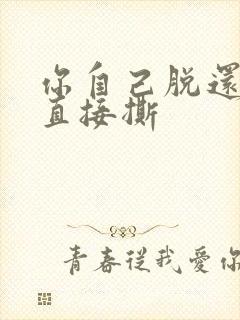 你自己脱還
直接撕
青春從我愛你